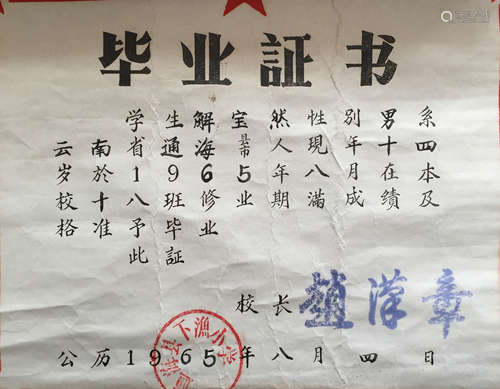 毕业証书
学生解宝然性别男系
云南省通海县市人現年十四
岁於1965年八月在本
校十八班修业期满成绩及
格准予毕业
此証
校长 趙漢章
海县下漁小学
公历1965年八月四日